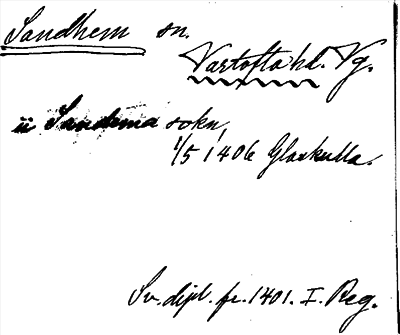 Sandhem sn.
Vartofta hd. Vg.
ii Sandema sokn,
1/5 1406 Glaskulla.
Sv. dipl. fr. 1401. I. Reg.